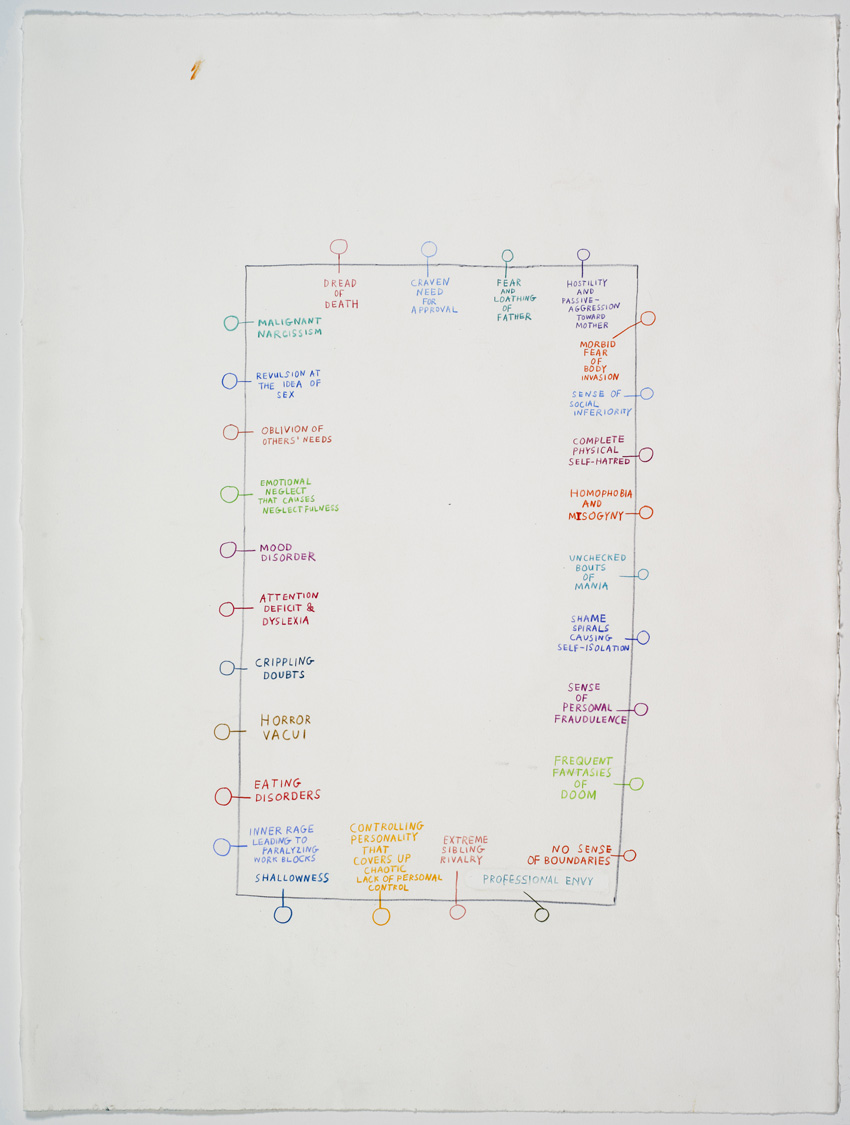 DREAD
OF
DEATH
CRAVEN
NEED
FOR
APPROVAL
FEAR
AND
LOATHING
OF
FATHER
HOSTILITY
AND
PASSIVE-
AGGRESSION
TOWARD
MOTHER
MORBID
FEAR
OF
BODY
INVASION
SENSE OF
SOCIAL
INFERIORITY
COMPLETE
PHYSICAL
SELF-HATRED
HOMOPHOBIA
AND
MISOGYNY
UNCHECKED
BOUTS
OF
MANIA
SHAME
SPIRALS
CAUSING
SELF-ISOLATION
SENSE
OF
PERSONAL
FRAUDULENCE
FREQUENT
FANTASIES
OF
DOOM
NO SENSE
OF BOUNDARIES
PROFESSIONAL ENVY
EXTREME
SIBLING
RIVALRY
CONTROLLING
PERSONALITY
THAT
COVERS UP
CHAOTIC
LACK OF PERSONAL
CONTROL
SHALLOWNESS
INNER RAGE
LEADING TO
PARALYZING
WORK BLOCKS
EATING
DISORDERS
HORROR
VACUI
CRIPPLING
DOUBTS
ATTENTION
DEFICIT &
DYSLEXIA
MOOD
DISORDER
EMOTIONAL
NEGLECT
THAT CAUSES
NEGLECTFULNESS
OBLIVION OF
OTHERS' NEEDS
REVULSION AT
THE IDEA OF
SEX
MALIGNANT
NARCISSISM